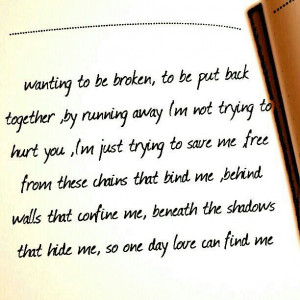 wanting to be broken, to be put back
together ,by running away I'm not trying to
hurt you ,I'm just trying to save me ,free
from these chains that bind me ,behind
walls that confine me, beneath the shadows
that hide me, so one day love can find me